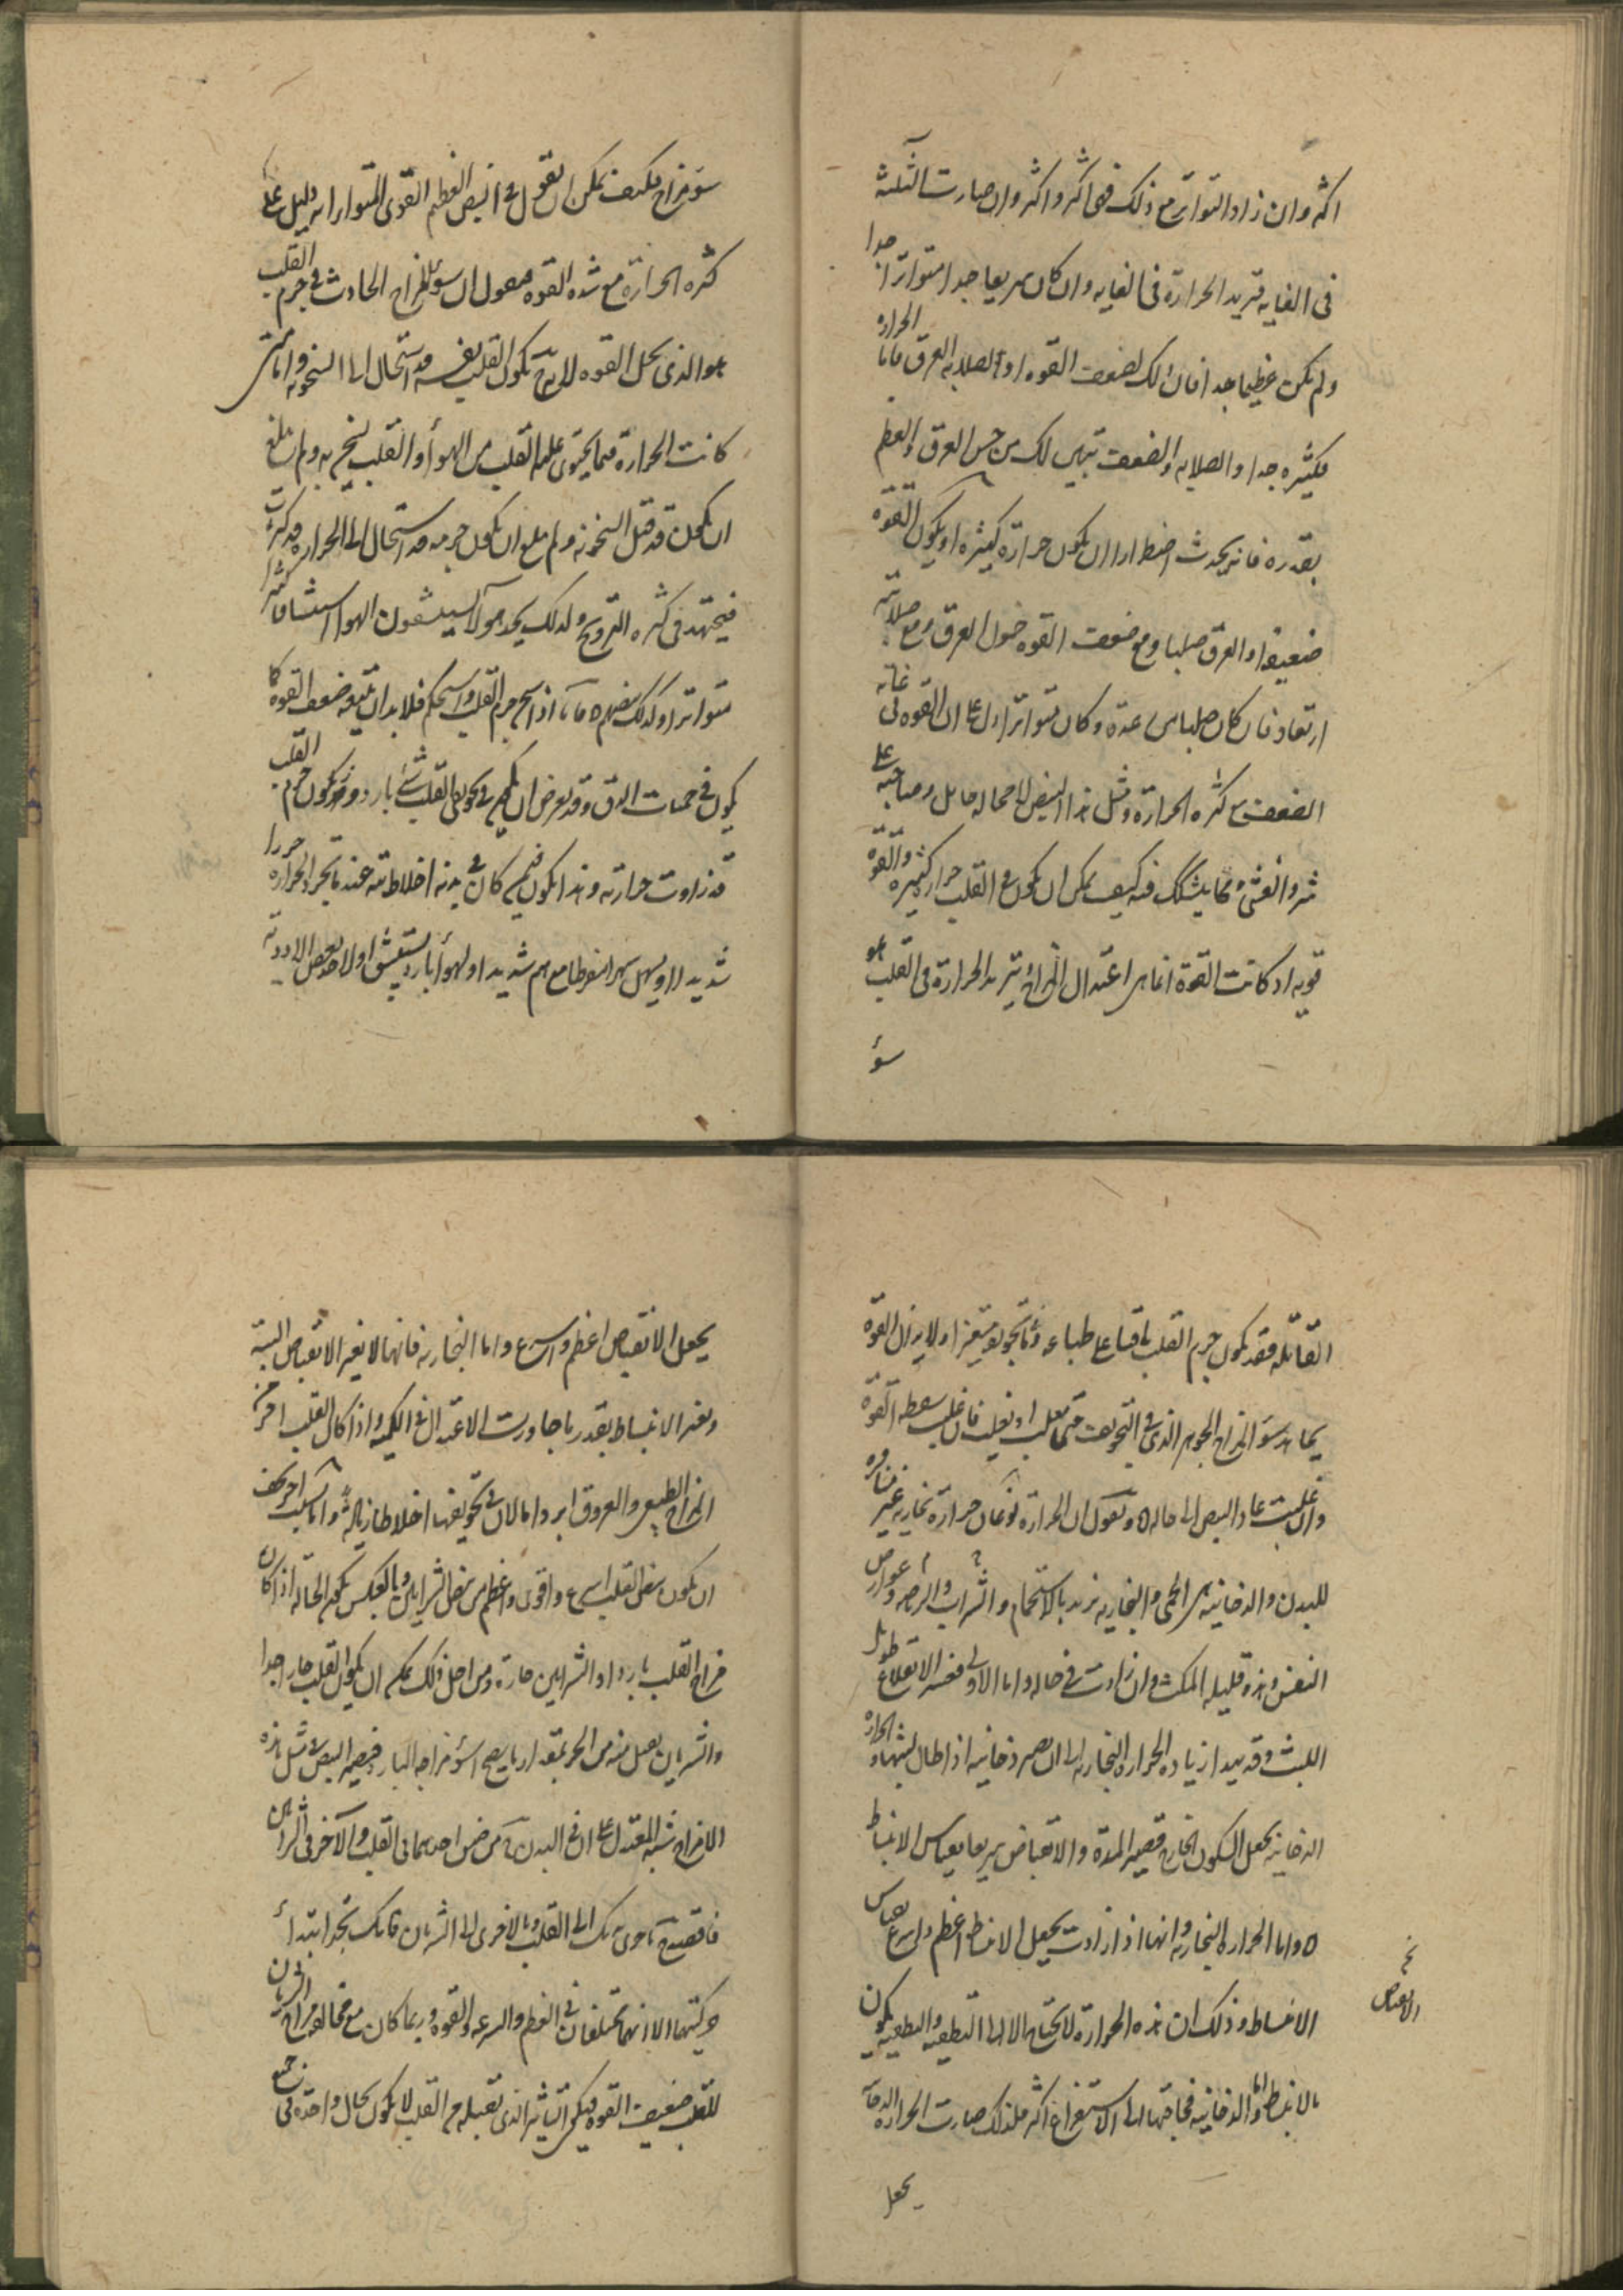 اكثر وان زاد التواتر مع ذلك فهى اكثر واكثر وان صارت الثلثة
فى الغايه فتزيد الحرارة فى الغايه وان كان سريعا جدا متواترا جدا
ولم يكن عظيما جدا فان ذلك لضعف القوه او لصلابه العرق فاما الحراره
فكثيره جدا والصلابه والضعف تبين لك من جس العرق والعظم
بقدره فانه يحدث اضطرارا ان يكون حرارة كثيره او يكون القوة
ضعيفه او العرق صلبا ومع ضعف القوه خمول العرق ومع صلابته
ارتعاد فان كان صلبا عدة وكان متواترا دل على ان القوه فى غاية
الضعف مع كثره الحرارة ومثل هذا النبض لا محاله وصاحبه على
شر والغشى ومما يشكك فيه كيف يمكن ان يكون فى القلب حرارة كثيره والقوة
قويه اذ كانت القوة انما هى اعتدال المزاج وتزيد الحرارة فى القلب هو
سؤ
سؤ مزاج فكيف يمكن ان نقول فى النبض العظيم القوى المتواتر انه دليل على
كثره الحرارة مع شدة القوه فنقول ان سؤ المزاج الحادث فى جرم القلب
هو الذى يحل القوه لانه يكون القلب نفسه قد استحال الى السخونه واما متى
كانت الحرارة فيما يحتوى عليه القلب من الهواء والقلب يسخن به ولم يبلغ
ان يكون قد قبل السخونه ولم يبلغ ان يكون جرمه قد استحال الى الحرارة
فيجتهد فى كثره الترويح ولذلك يجد هولاء يستنشقون الهوا استنشاقا كثيرا
متواترا وكذلك نبضهم فاما اذا سخن جرم القلب واستحكم فلابد ان يتبعه ضعف القوه كما
يكون فى حميات الدق وقد يعرض ان يكون فى تجويف القلب شئ بارد ويكون جرم القلب
قد زادت حرارته وهذا يكون فيمن كان فى بدنه اخلاط نيه عندما يحرد الحراره حردا
شديدا او يسهر سهرا مفرطا مع هم شديد او لهواء بارد يستنشق او لاخذ بعض الادوية
القتاله فقد يكون جرم القلب باقيا على طباعه وما تجويفه متغيرا ولا يزال القوة
يجاهد سؤ المزاج الجوهر الذى فى التجويف حتى تغلب او يغلب فان غلب سقطت القوة
وان غلبت عاد النبض الى حاله ونقول ان الحرارة نوعان حرارة بخاريه غير منافره
للبدن والدخانيه هى الحمى والبخاريه تزيد بالاستحمام والشراب والرياضه وعوارض
النفس وهذه قليله المكث وان زادت فى حاله واما الاولى فعسر الاقلاع طويل
اللبث وقد يبدا زياده الحراره البخاريه الى ان تصير دخانيه اذا طال لبثها والحراره
الدخانيه يجعل السكون الخارج قصير المدة والانقباض سريعا بقياس الانبساط
واما الحرارة البخاريه فانها اذا زادت يجعل الانبساط اعظم واسرع بقياس
الانبساط وذلك ان هذه الحرارة لا تحتاج الا الى التطفيه والتطفيه يكون
نخ الانقباض
بالانبساط واما الدخانيه فحاجتها الى الاستفراغ اكثر فلذلك صارت الحراره الدخانيه
يجعل
يجعل الانقباض اعظم واسرع واما البخاريه فانها لا تغير الانقباض البتة
وتغير الانبساط بقدر ما جاوزت الاعتدال فى الكميه واذا كان القلب احر من
المزاج الطبيعى والعروق ابرد اما لان فى تجويفها اخلاطا واما لسبب اخر
ان يكون نبض القلب اسرع واقوى واعظم من نبض الشرايين وبالعكس يكون الحاله اذا كان
مزاج القلب باردا والشرايين حارة ومن اجل ذلك يمكن ان يكون القلب حارا جدا
والشريان يقبل منه من الحر بمقدار ما يصلح سؤ مزاجه البارد فيصير النبض فى مثل هذه
الامزاج شبه المعتدل على ان فى البدن مرضين احدهما فى القلب والآخر فى الشرايين
فاقصد باحدى يديك الى القلب وبالاخرى الى الشريان فانك تجد ابتداء
حركتهما الا انهما تختلفان فى العظم والسرعه والقوه وربما كان مع مخالفه مزاج الشريان
للقلب ضعيف القوه فيكون التاثير الذى تقبله من القلب لا يكون بحال واحدة فى جميع